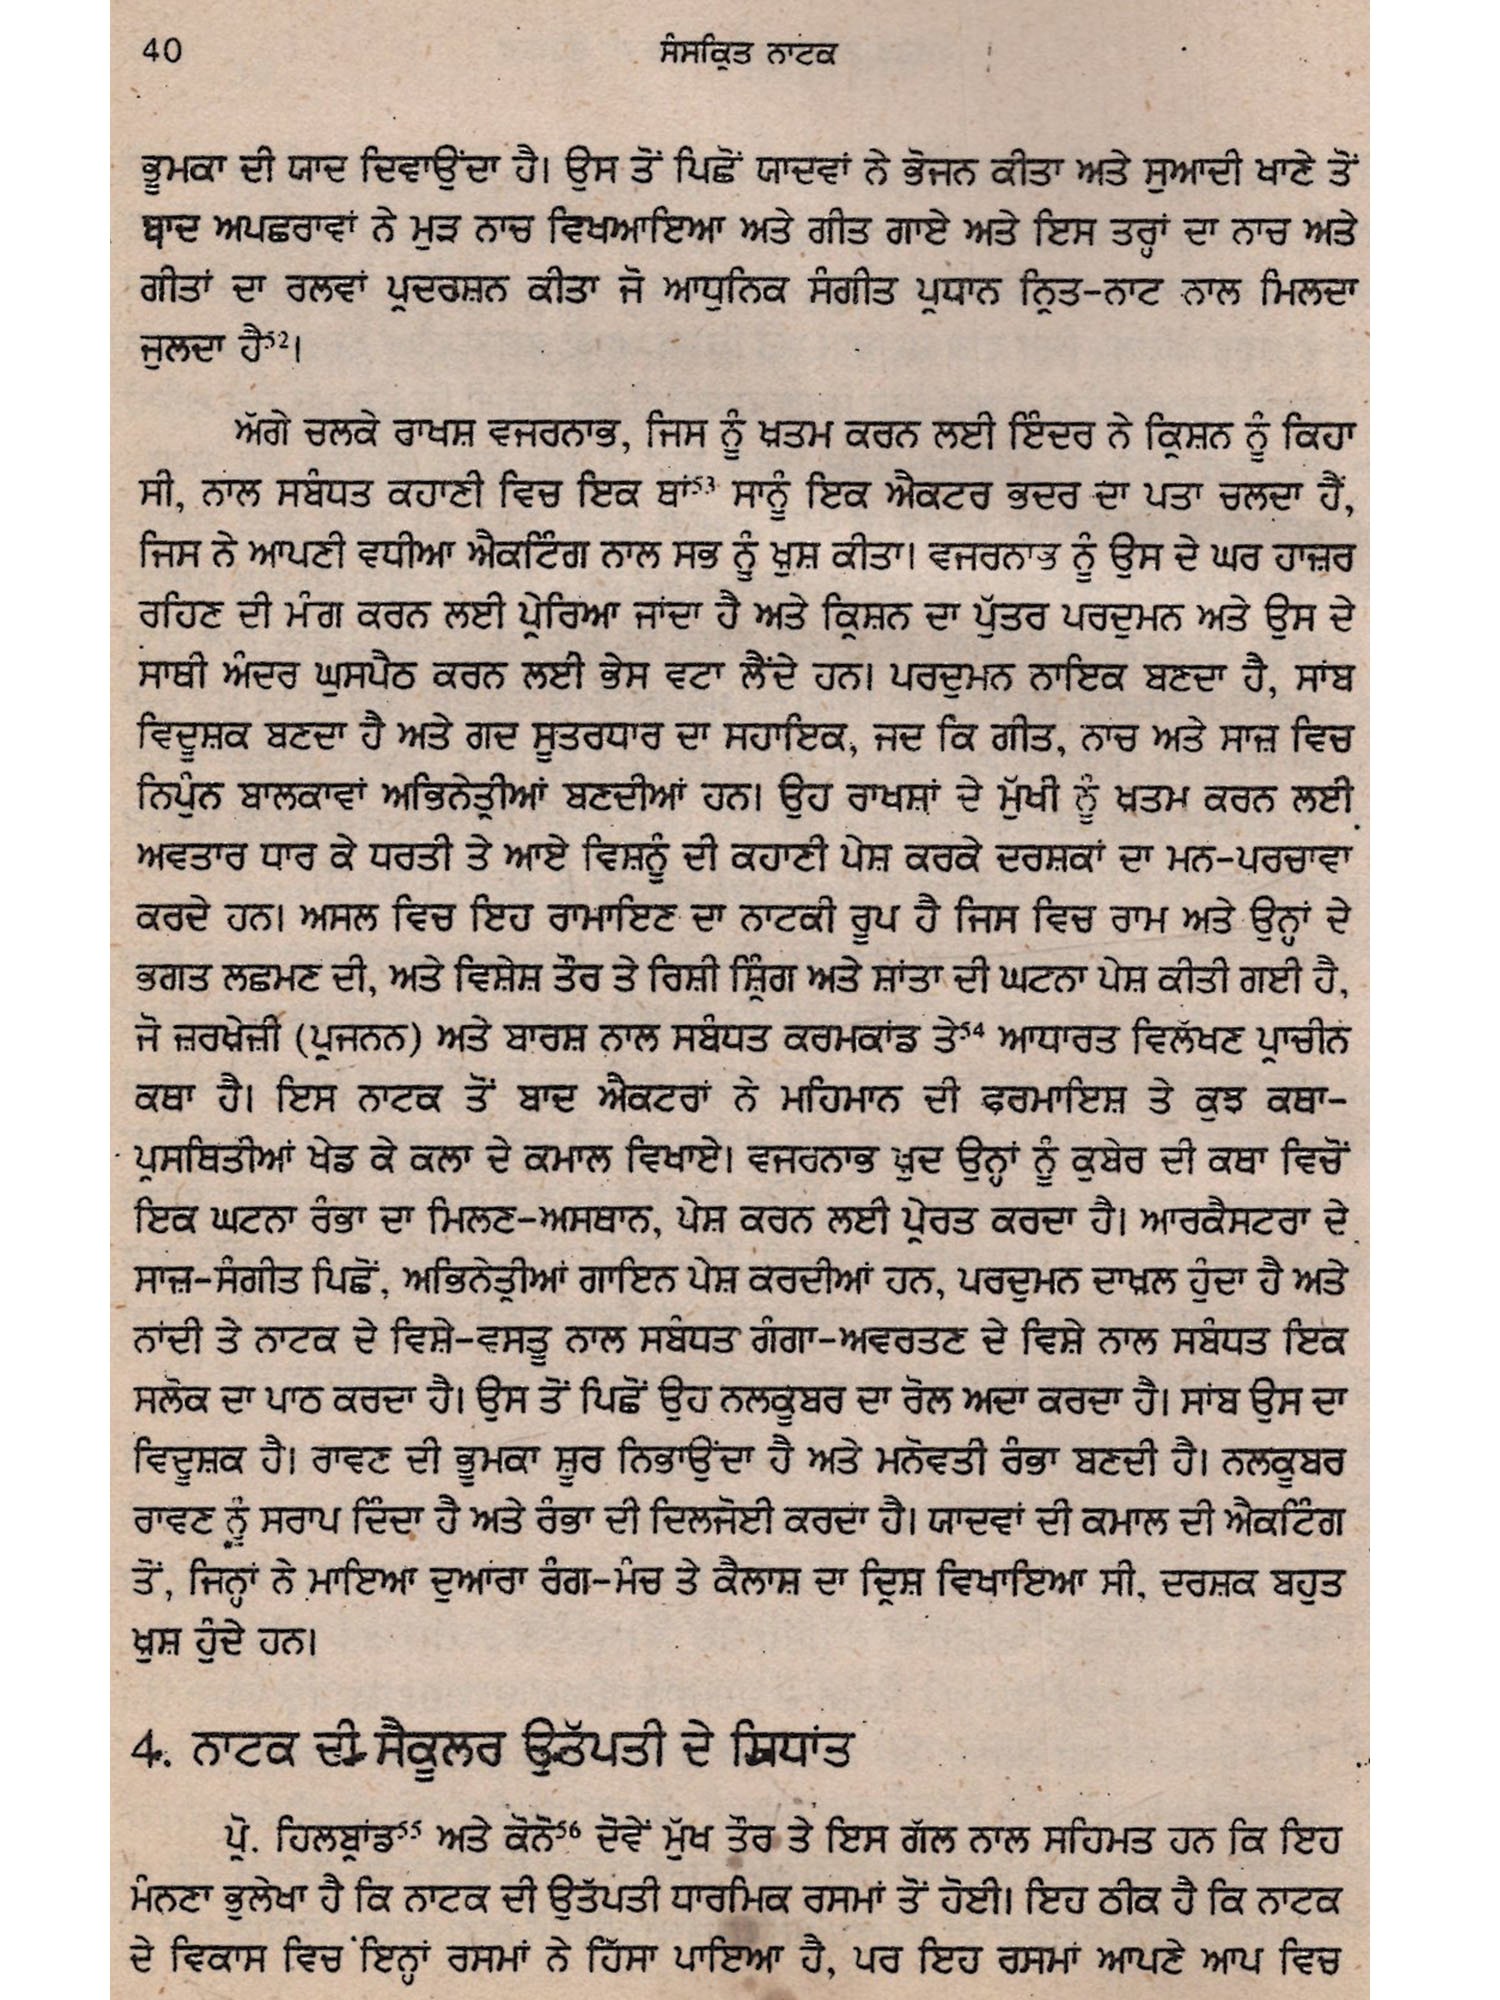 40
ਸੰਸਕ੍ਰਿਤ ਨਾਟਕ
ਭੂਮਕਾ ਦੀ ਯਾਦ ਦਿਵਾਉਂਦਾ ਹੈ। ਉਸ ਤੋਂ ਪਿਛੋਂ ਯਾਦਵਾਂ ਨੇ ਭੋਜਨ ਕੀਤਾ ਅਤੇ ਸੁਆਦੀ ਖਾਣੇ ਤੋਂ
ਬਾਦ ਅਪਛਰਾਵਾਂ ਨੇ ਮੁੜ ਨਾਚ ਵਿਖਆਇਆ ਅਤੇ ਗੀਤ ਗਾਏ ਅਤੇ ਇਸ ਤਰ੍ਹਾਂ ਦਾ ਨਾਚ ਅਤੇ
ਗੀਤਾਂ ਦਾ ਰਲਵਾਂ ਪ੍ਰਦਰਸ਼ਨ ਕੀਤਾ ਜੋ ਆਧੁਨਿਕ ਸੰਗੀਤ ਪ੍ਰਧਾਨ ਨ੍ਰਿਤ-ਨਾਟ ਨਾਲ ਮਿਲਦਾ
ਜੁਲਦਾ ਹੈ⁵²।
ਅੱਗੇ ਚਲਕੇ ਰਾਖਸ਼ ਵਜਰਨਾਭ, ਜਿਸ ਨੂੰ ਖ਼ਤਮ ਕਰਨ ਲਈ ਇੰਦਰ ਨੇ ਕ੍ਰਿਸ਼ਨ ਨੂੰ ਕਿਹਾ
ਸੀ, ਨਾਲ ਸਬੰਧਤ ਕਹਾਣੀ ਵਿਚ ਇਕ ਥਾਂ⁵³ ਸਾਨੂੰ ਇਕ ਐਕਟਰ ਭਦਰ ਦਾ ਪਤਾ ਚਲਦਾ ਹੈਂ,
ਜਿਸ ਨੇ ਆਪਣੀ ਵਧੀਆ ਐਕਟਿੰਗ ਨਾਲ ਸਭ ਨੂੰ ਖ਼ੁਸ਼ ਕੀਤਾ। ਵਜਰਨਾਭ ਨੂੰ ਉਸ ਦੇ ਘਰ ਹਾਜ਼ਰ
ਰਹਿਣ ਦੀ ਮੰਗ ਕਰਨ ਲਈ ਪ੍ਰੇਰਿਆ ਜਾਂਦਾ ਹੈ ਅਤੇ ਕ੍ਰਿਸ਼ਨ ਦਾ ਪੁੱਤਰ ਪਰਦੁਮਨ ਅਤੇ ਉਸ ਦੇ
ਸਾਥੀ ਅੰਦਰ ਘੁਸਪੈਠ ਕਰਨ ਲਈ ਭੇਸ ਵਟਾ ਲੈਂਦੇ ਹਨ। ਪਰਦੁਮਨ ਨਾਇਕ ਬਣਦਾ ਹੈ, ਸਾਂਬ
ਵਿਦੂਸ਼ਕ ਬਣਦਾ ਹੈ ਅਤੇ ਗਦ ਸੂਤਰਧਾਰ ਦਾ ਸਹਾਇਕ, ਜਦ ਕਿ ਗੀਤ, ਨਾਚ ਅਤੇ ਸਾਜ਼ ਵਿਚ
ਨਿਪੁੰਨ ਬਾਲਕਾਵਾਂ ਅਭਿਨੇਤ੍ਰੀਆਂ ਬਣਦੀਆਂ ਹਨ। ਉਹ ਰਾਖਸ਼ਾਂ ਦੇ ਮੁੱਖੀ ਨੂੰ ਖ਼ਤਮ ਕਰਨ ਲਈ
ਅਵਤਾਰ ਧਾਰ ਕੇ ਧਰਤੀ ਤੇ ਆਏ ਵਿਸ਼ਨੂੰ ਦੀ ਕਹਾਣੀ ਪੇਸ਼ ਕਰਕੇ ਦਰਸ਼ਕਾਂ ਦਾ ਮਨ-ਪਰਚਾਵਾ
ਕਰਦੇ ਹਨ। ਅਸਲ ਵਿਚ ਇਹ ਰਾਮਾਇਣ ਦਾ ਨਾਟਕੀ ਰੂਪ ਹੈ ਜਿਸ ਵਿਚ ਰਾਮ ਅਤੇ ਉਨ੍ਹਾਂ ਦੇ
ਭਗਤ ਲਛਮਣ ਦੀ, ਅਤੇ ਵਿਸ਼ੇਸ਼ ਤੌਰ ਤੇ ਰਿਸ਼ੀ ਸ਼੍ਰਿੰਗ ਅਤੇ ਸ਼ਾਂਤਾ ਦੀ ਘਟਨਾ ਪੇਸ਼ ਕੀਤੀ ਗਈ ਹੈ,
ਜੋ ਜ਼ਰਖੇਜ਼ੀ (ਪ੍ਰਜਨਨ) ਅਤੇ ਬਾਰਸ਼ ਨਾਲ ਸਬੰਧਤ ਕਰਮਕਾਂਡ ਤੇ⁵⁴ ਆਧਾਰਤ ਵਿਲੱਖਣ ਪ੍ਰਾਚੀਨ
ਕਥਾ ਹੈ। ਇਸ ਨਾਟਕ ਤੋਂ ਬਾਦ ਐਕਟਰਾਂ ਨੇ ਮਹਿਮਾਨ ਦੀ ਫਰਮਾਇਸ਼ ਤੇ ਕੁਝ ਕਥਾ-
ਪ੍ਰਸਥਿਤੀਆਂ ਖੇਡ ਕੇ ਕਲਾ ਦੇ ਕਮਾਲ ਵਿਖਾਏ। ਵਜਰਨਾਭ ਖ਼ੁਦ ਉਨ੍ਹਾਂ ਨੂੰ ਕੁਬੇਰ ਦੀ ਕਥਾ ਵਿਚੋਂ
ਇਕ ਘਟਨਾ ਰੰਭਾ ਦਾ ਮਿਲਣ-ਅਸਥਾਨ, ਪੇਸ਼ ਕਰਨ ਲਈ ਪ੍ਰੇਰਤ ਕਰਦਾ ਹੈ। ਆਰਕੈਸਟਰਾ ਦੇ
ਸਾਜ਼-ਸੰਗੀਤ ਪਿਛੋਂ, ਅਭਿਨੇਤ੍ਰੀਆਂ ਗਾਇਨ ਪੇਸ਼ ਕਰਦੀਆਂ ਹਨ, ਪਰਦੁਮਨ ਦਾਖ਼ਲ ਹੁੰਦਾ ਹੈ ਅਤੇ
ਨਾਂਦੀ ਤੇ ਨਾਟਕ ਦੇ ਵਿਸ਼ੇ-ਵਸਤੂ ਨਾਲ ਸਬੰਧਤ ਗੰਗਾ-ਅਵਰਤਣ ਦੇ ਵਿਸ਼ੇ ਨਾਲ ਸਬੰਧਤ ਇਕ
ਸਲੋਕ ਦਾ ਪਾਠ ਕਰਦਾ ਹੈ। ਉਸ ਤੋਂ ਪਿਛੋਂ ਉਹ ਨਲਕੂਬਰ ਦਾ ਰੋਲ ਅਦਾ ਕਰਦਾ ਹੈ। ਸਾਂਬ ਉਸ ਦਾ
ਵਿਦੂਸ਼ਕ ਹੈ। ਰਾਵਣ ਦੀ ਭੂਮਕਾ ਸ਼ੂਰ ਨਿਭਾਉਂਦਾ ਹੈ ਅਤੇ ਮਨੋਵਤੀ ਰੰਭਾ ਬਣਦੀ ਹੈ। ਨਲਕੂਬਰ
ਰਾਵਣ ਨੂੰ ਸਰਾਪ ਦਿੰਦਾ ਹੈ ਅਤੇ ਰੰਭਾ ਦੀ ਦਿਲਜੋਈ ਕਰਦਾ ਹੈ। ਯਾਦਵਾਂ ਦੀ ਕਮਾਲ ਦੀ ਐਕਟਿੰਗ
ਤੋਂ, ਜਿਨ੍ਹਾਂ ਨੇ ਮਾਇਆ ਦੁਆਰਾ ਰੰਗ-ਮੰਚ ਤੇ ਕੈਲਾਸ਼ ਦਾ ਦ੍ਰਿਸ਼ ਵਿਖਾਇਆ ਸੀ, ਦਰਸ਼ਕ ਬਹੁਤ
ਖ਼ੁਸ਼ ਹੁੰਦੇ ਹਨ।
4. ਨਾਟਕ ਦੀ ਸੈਕੂਲਰ ਉਤੱਪਤੀ ਦੇ ਸਿਧਾਂਤ
ਪ੍ਰੋ. ਹਿਲਬ੍ਰਾਂਡ⁵⁵ ਅਤੇ ਕੋਨੋ⁵⁶ ਦੋਵੇਂ ਮੁੱਖ ਤੌਰ ਤੇ ਇਸ ਗੱਲ ਨਾਲ ਸਹਿਮਤ ਹਨ ਕਿ ਇਹ
ਮੰਨਣਾ ਭੁਲੇਖਾ ਹੈ ਕਿ ਨਾਟਕ ਦੀ ਉਤੱਪਤੀ ਧਾਰਮਿਕ ਰਸਮਾਂ ਤੋਂ ਹੋਈ। ਇਹ ਠੀਕ ਹੈ ਕਿ ਨਾਟਕ
ਦੇ ਵਿਕਾਸ ਵਿਚ ਇਨ੍ਹਾਂ ਰਸਮਾਂ ਨੇ ਹਿੱਸਾ ਪਾਇਆ ਹੈ, ਪਰ ਇਹ ਰਸਮਾਂ ਆਪਣੇ ਆਪ ਵਿਚ